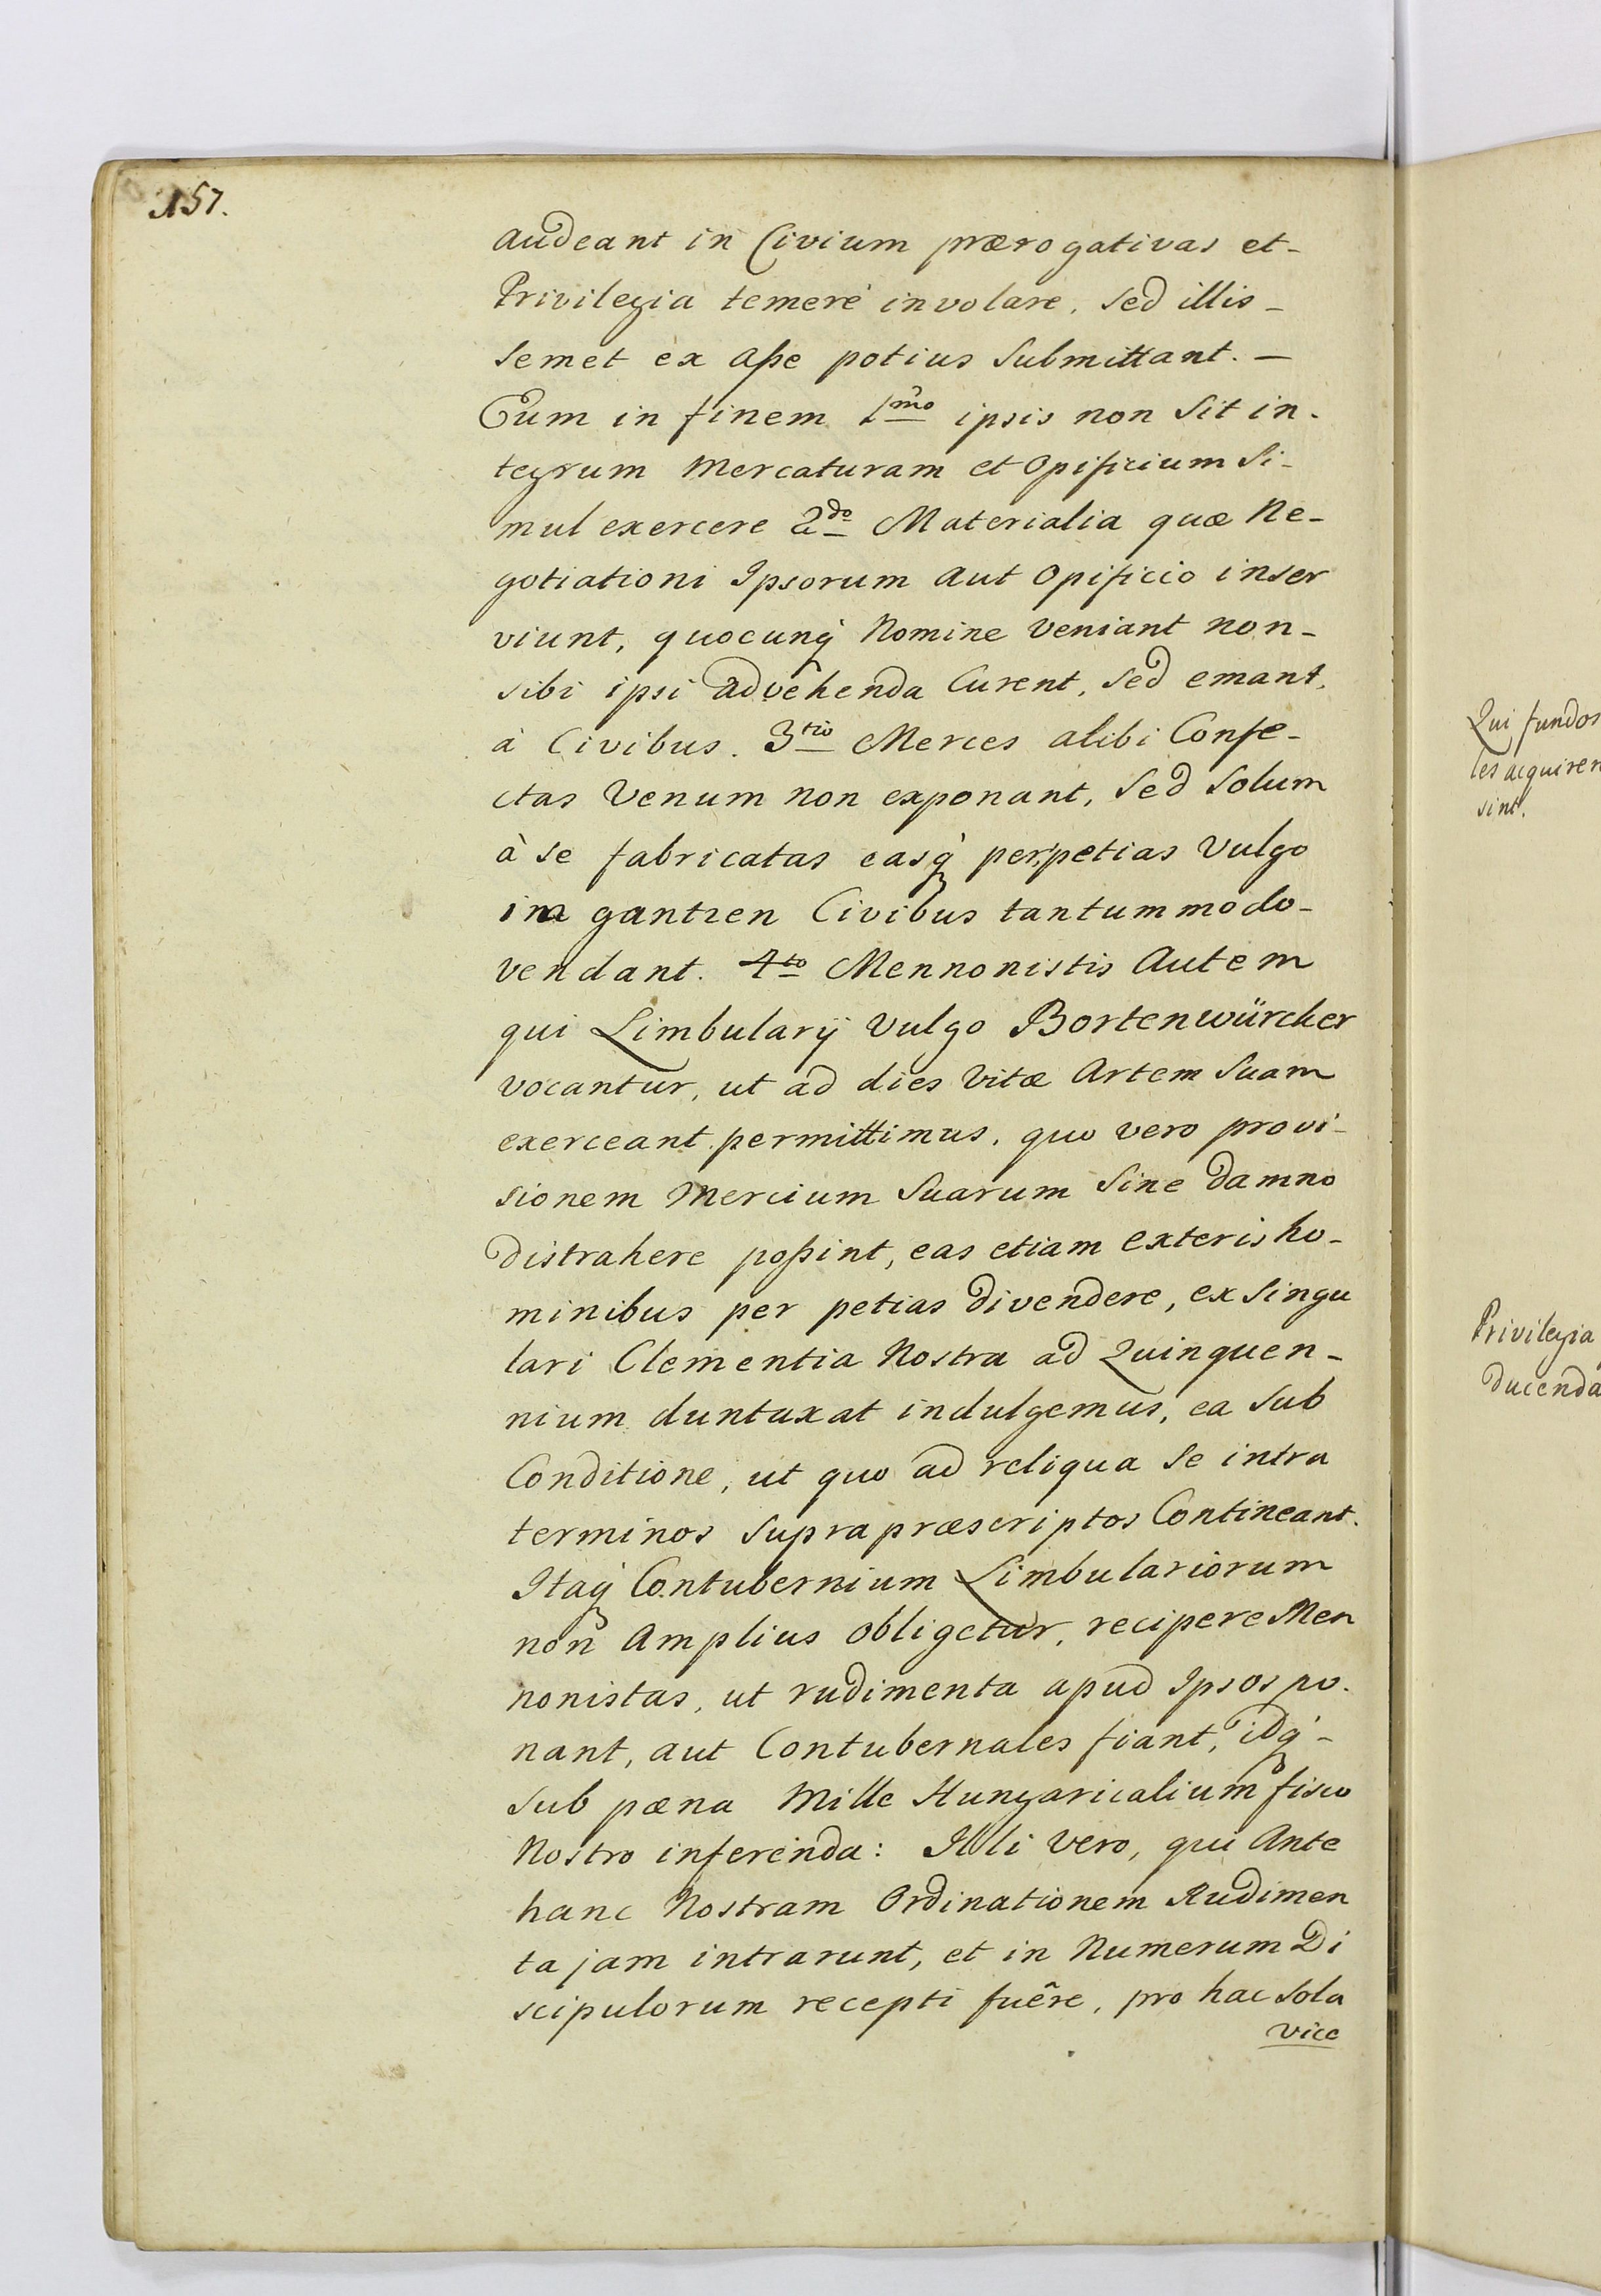 157.
audeant in Civium prærogativas et-
Privilegia temeré involare, sed illis-
semet ex aße potius submittant. —
Eum in finem 1mo ipsis non sit in-
tegrum mercaturam et opificium si-
mul exercere 2do Materialia quæ ne-
gotiationi Ipsorum aut opificio inser
viunt, quocunq́ nomine veniant non-
sibi ipsi advêhenda curent, sed emant,
à Civibus. 3tio Merces alibi confe-
ctas venum non exponant, sed solum
à se fabricatas easq́ per petias vulgo
im gantzen Civibus tantummodo-
vendant. 4to Mennonistis autem
qui Limbularÿ vulgo Bortenwürcker
vocantur, ut ad dies vitæ artem suam
exerceant permittimus, quo vero provi-
sionem mercium suarum sine damno
distrahere poßint, eas etiam exteris ho-
minibus per petias divendere, ex singu
lari Clementia Nostra ad Quinquen-
nium duntaxat indulgemus, ea sub
Conditione, ut quo ad reliqua se intra
terminos supra præscriptos Contineant.
Itaq́ Contubernium Limbulariorum
non amplius obligetur, recipere Men
nonistas, ut rudimenta apud Ipsos po-
nant, aut Contubernales fiant, idq́-
sub pœna Mille Hungaricalium fisco
Nostro inferenda: Illi vero, qui ante
hanc Nostram Ordinationem Rudimen
ta jam intrarunt, et in Numerum Di
scipulorum recepti fuêre, pro hac sola
vice
Qui fundos
les acquiren
sint.
Privilegia
ducenda